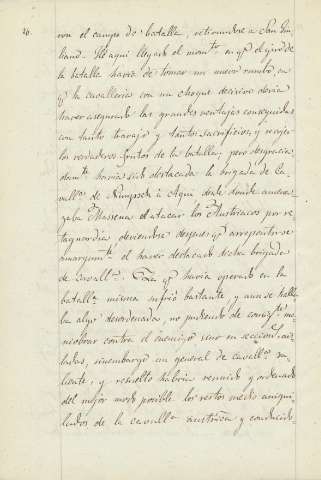 26.
ron el campo de batalla, retirandose a San Giu-
liano. He aqui llegado el momto. en q.e el giro de
la batalla havia de tomar un nuevo rumbo, en
q.e la cavalleria con un choque decisivo devia
haver asegurado las grandes ventajas conseguidas
con tanto travajo y tantos sacrificios, y recojer
los verdaderos frutos de la batalla; pero desgracia
damte. havia sido destacada la brigada de Ca-
vall.a de Nimpsch à Aqui desde donde amena-
zaba Massena el atacar los Austriacos por re-
taguardia, deviendose despues q.e arrepentirse
amargamte. el haver destacado dicha brigada
de Cavall.a. Esta q.e havia operado en la
batalla misma sufrió bastante, y aun se halla
ba algo desordenada, no pudiendo de consigte. ma-
niobrar contra el enemigo sino en secciones ais-
ladas, sinembargo un general de cavall.a va-
liente, y resuelto habria reunido y ordenado
del mejor modo posible los restos medio aniqui-
lados de la cavall.a austriaca y conducido-